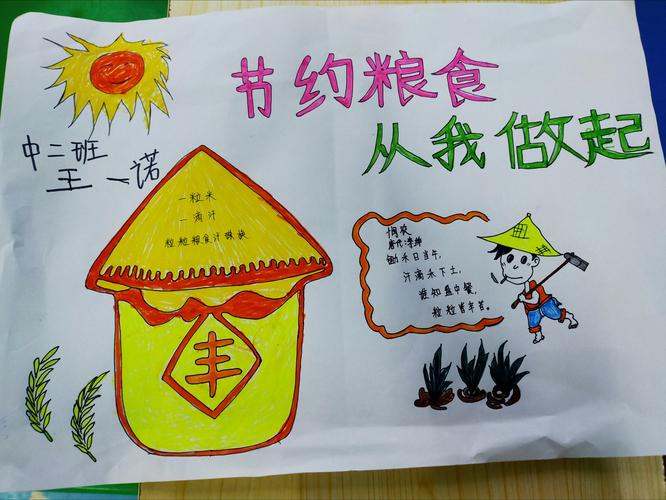 节约粮食
从我做起
中二班
王一诺
一粒米
一滴汗
粒粒粮食汗珠换
丰
悯农
唐代:李绅
锄禾日当午,
汗滴禾下土,
谁知盘中餐,
粒粒皆辛苦。